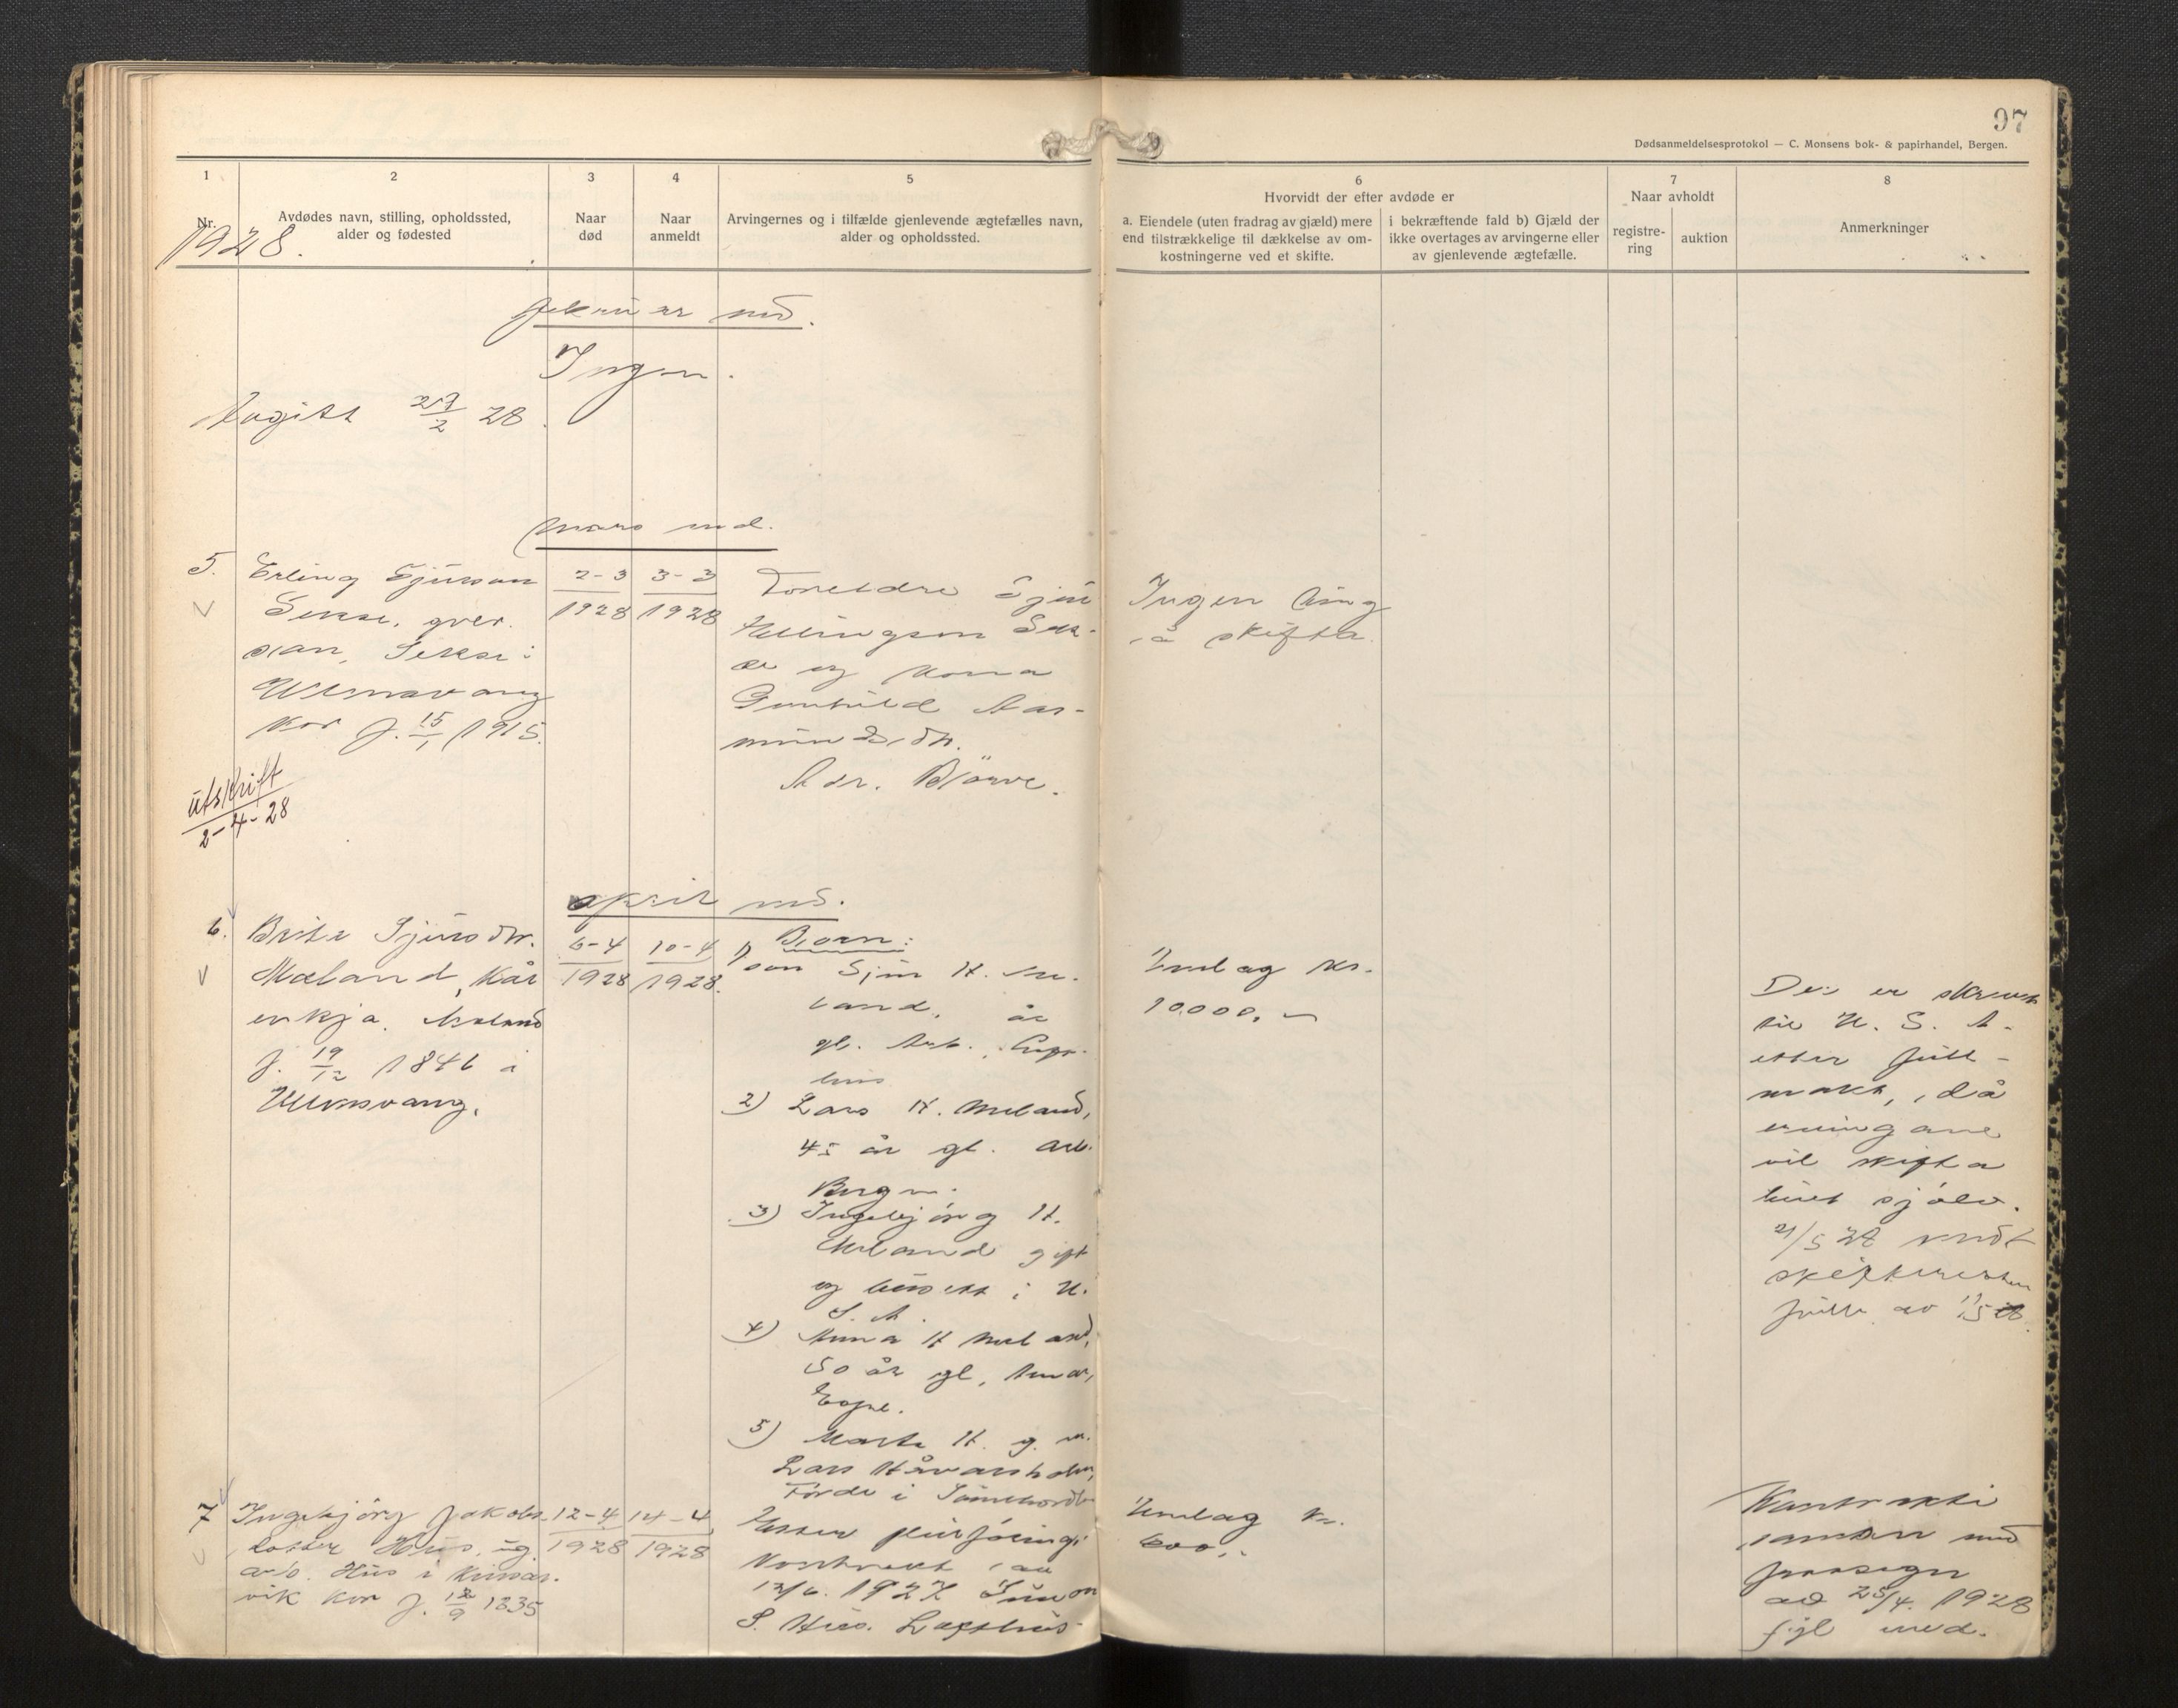 97
Dødsanmeldelsesprotokol — C. Monsens bok- & papirhandel, Bergen.
1
2
3
4
5
6
7
8
Nr.
Avdødes navn, stilling, opholdssted,
alder og fødested
Naar
død
Naar
anmeldt
Arvingernes og i tilfælde gjenlevende ægtefælles navn,
alder og opholdssted.
Hvorvidt der efter avdøde er
a. Eiendele (uten fradrag av gjæld) mere
end tilstrækkelige til dækkelse av om-
kostningerne ved et skifte.
i bekræftende fald b) Gjæld der
ikke overtages av arvingerne eller
av gjenlevende ægtefælle.
Naar avholdt
registre-
ring
auktion
Anmerkninger
1928.
februar md.
Ingen.
27/2 28
mars md.
5.
Erling Sjurson
Sekse,
Sekse i
Ullensvang
f. 15/1 1915.
2-3
1928
3-3
1928
Foreldre Sjur
Hellingson Sek-
se og kona
Gunhild Aas-
mundsdtr.
Adr. Börve.
Ingen ting
å skifta.
utskrift
2-4-28
april md.
6.
Brita Sjursdtr.
Mæland, kår
enkja, Mæland
f. 19/12 1846 i
Ullensvang.
6-4
1928
10-4
1928.
Born:
1) son Sjur H. Me-
land, år
gl. Arb.
2) Lars H. Meland,
45 år gl. arb.
Bergen.
3) Ingebjörg H.
Meland gift
og busett i U.
S. A.
4) Anna H Meland,
50 år gl,
5) Marta H. g. m.
Lars
Förde i Sunnhordl.
Umlag kr.
10000.-
Dei er skreve
til U. S. A.
etter full-
makt, då
ervingane
vil skifta
buet sjölv.
21/5 28 sendt
skifteretten
7
Ingebjörg Jakobs-
dotter Hus, ug.
Hus i Kinsar-
vik f. 12/9 1835
12-4
1928
14-4
1928
Etter
kontrakt av
12/6. 1927 Simon
S. Hus. Lofthus
Umlag kr.
600,-
Kontrakti
saman med
av 25/4. 1928
fylgjer med.